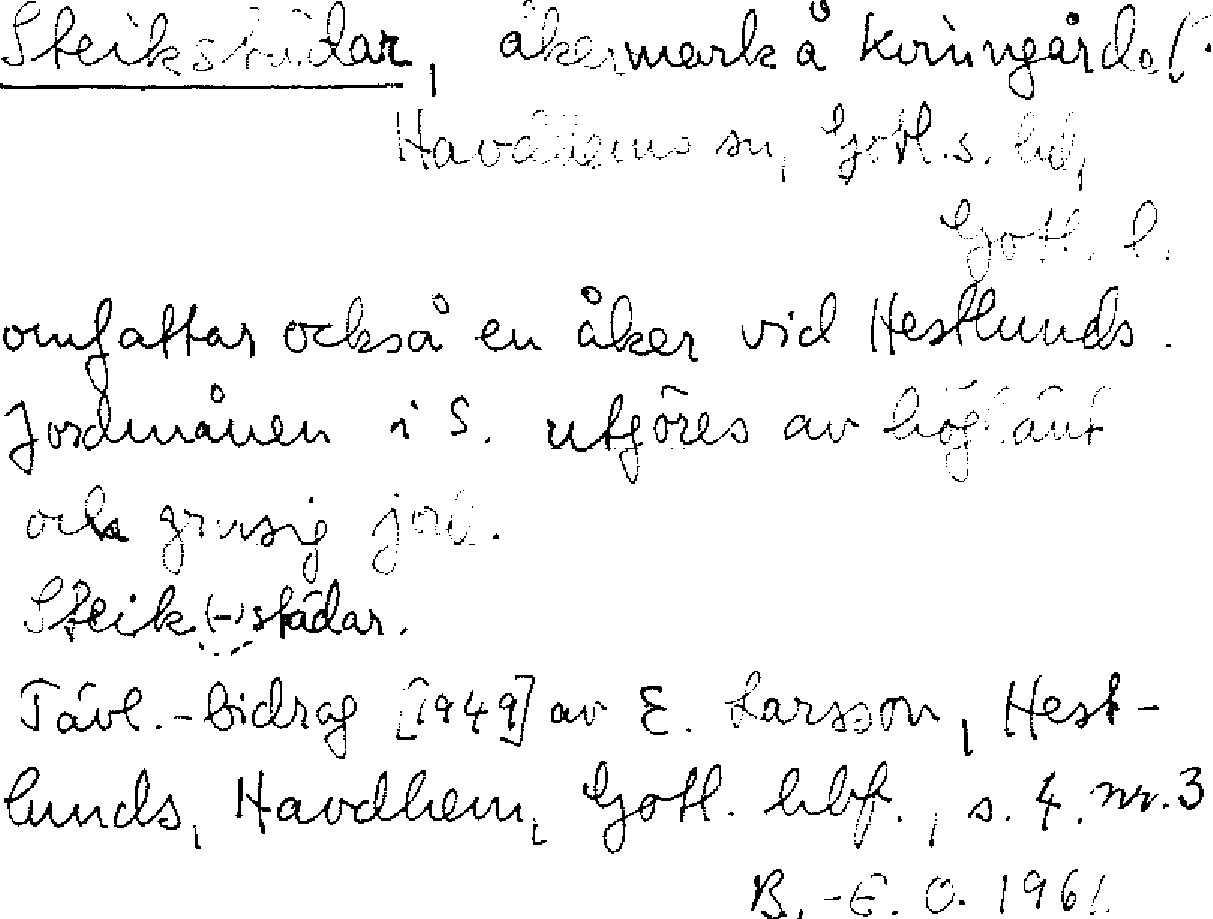 Steikstädar, åkermark å Kviungårde(.
Havdhems sn, Gotl.s. hd,
Gotl. l.
omfattar också en åker vid Hestlunds.
Jordmånen i S. utgöres av höglänt
och grusig jord.
Steik(-)städar.
Tävl.-bidrag [1949] av E. Larsson, Hest-
lunds, Havdhem, Gotl. hbf., s. 4. nr. 3
B.-E. O. 1961.